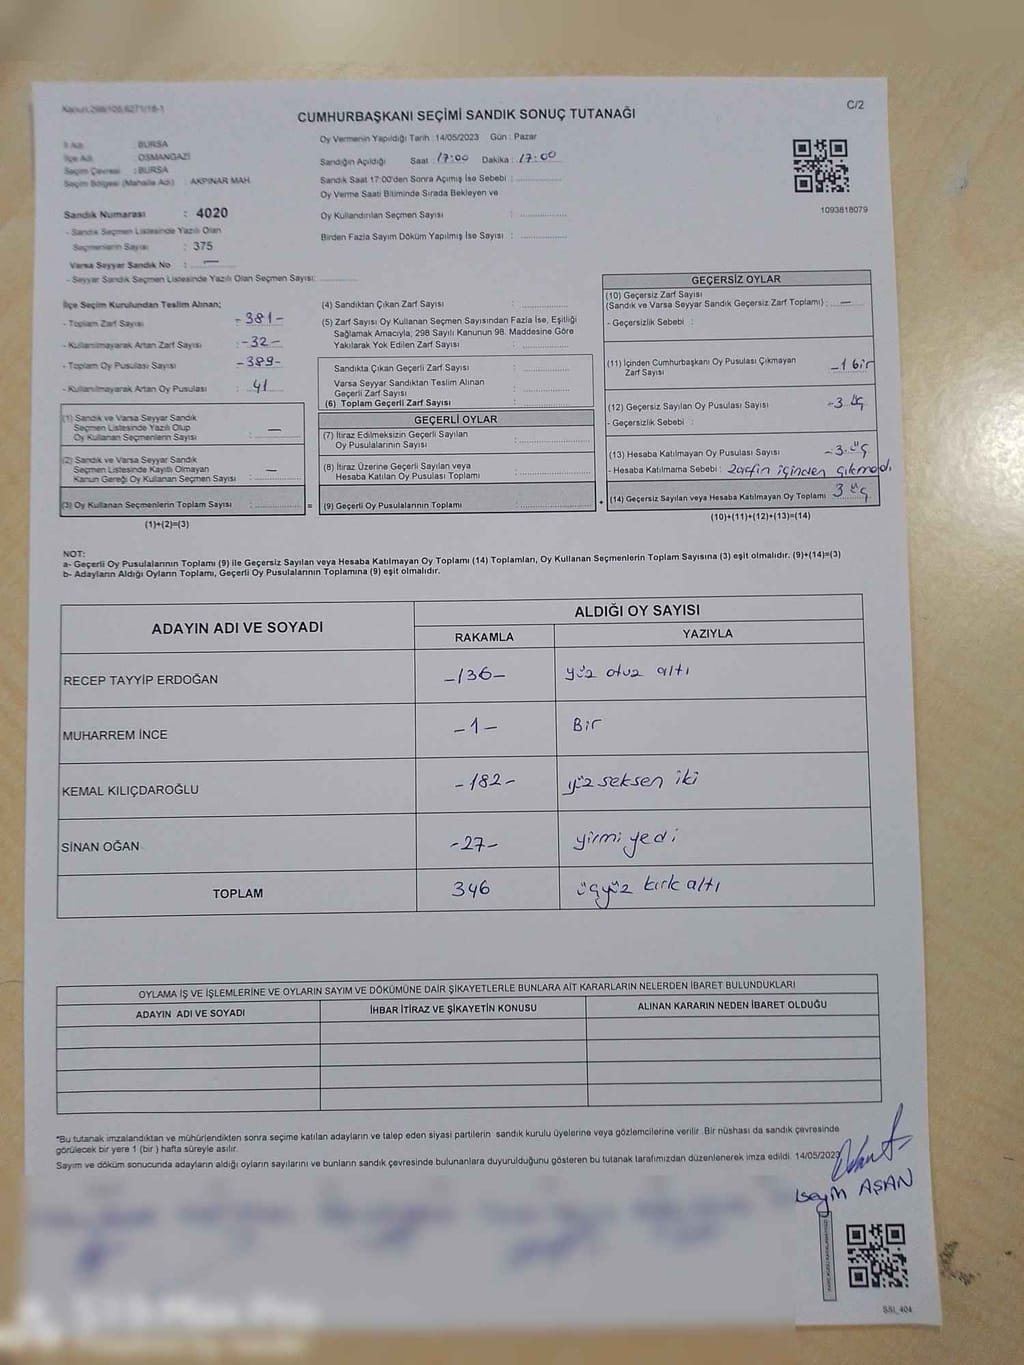 Kanun:298/105,6271/18-1
C/2
CUMHURBAŞKANI SEÇİMİ SANDIK SONUÇ TUTANAĞI
İl Adı : BURSA
İlçe Adı : OSMANGAZİ
Seçim Çevresi : BURSA
Seçim Bölgesi (Mahalle Adı) : AKPINAR MAH.
Oy Vermenin Yapıldığı Tarih : 14/05/2023 Gün : Pazar
Sandığın Açıldığı Saat : 17:00 Dakika : 17:00
Sandık Saat 17:00'den Sonra Açımış İse Sebebi :
Oy Verme Saati Bitiminde Sırada Bekleyen ve
Oy Kullandırılan Seçmen Sayısı :
Birden Fazla Sayım Döküm Yapılmış İse Sayısı :
1093818079
Sandık Numarası : 4020
- Sandık Seçmen Listesinde Yazılı Olan
Seçmenlerin Sayısı : 375
Varsa Seyyar Sandık No : —
- Seyyar Sandık Seçmen Listesinde Yazılı Olan Seçmen Sayısı:
İlçe Seçim Kurulundan Teslim Alınan;
- Toplam Zarf Sayısı : -381-
- Kullanılmayarak Artan Zarf Sayısı : -32-
- Toplam Oy Pusulası Sayısı : -389-
- Kullanılmayarak Artan Oy Pusulası : 41
(1) Sandık ve Varsa Seyyar Sandık
Seçmen Listesinde Yazılı Olup
Oy Kullanan Seçmenlerin Sayısı : —
(2) Sandık ve Varsa Seyyar Sandık
Seçmen Listesinde Kayıtlı Olmayan
Kanun Gereği Oy Kullanan Seçmen Sayısı : —
(3) Oy Kullanan Seçmenlerin Toplam Sayısı : =
(1)+(2)=(3)
(4) Sandıktan Çıkan Zarf Sayısı :
(5) Zarf Sayısı Oy Kullanan Seçmen Sayısından Fazla İse, Eşitliği
Sağlamak Amacıyla, 298 Sayılı Kanunun 98. Maddesine Göre
Yakılarak Yok Edilen Zarf Sayısı :
Sandıkta Çıkan Geçerli Zarf Sayısı :
Varsa Seyyar Sandıktan Teslim Alınan
Geçerli Zarf Sayısı :
(6) Toplam Geçerli Zarf Sayısı :
GEÇERLİ OYLAR
(7) İtiraz Edilmeksizin Geçerli Sayılan
Oy Pusulalarının Sayısı :
(8) İtiraz Üzerine Geçerli Sayılan veya
Hesaba Katılan Oy Pusulası Toplamı :
(9) Geçerli Oy Pusulalarının Toplamı : +
GEÇERSİZ OYLAR
(10) Geçersiz Zarf Sayısı
(Sandık ve Varsa Seyyar Sandık Geçersiz Zarf Toplamı) : —
- Geçersizlik Sebebi :
(11) İçinden Cumhurbaşkanı Oy Pusulası Çıkmayan
Zarf Sayısı -1 bir
(12) Geçersiz Sayılan Oy Pusulası Sayısı -3 üç
- Geçersizlik Sebebi :
(13) Hesaba Katılmayan Oy Pusulası Sayısı -3 üç
- Hesaba Katılmama Sebebi : zarfın içinden çıkmadı
(14) Geçersiz Sayılan veya Hesaba Katılmayan Oy Toplamı 3 üç
(10)+(11)+(12)+(13)=(14)
NOT:
a- Geçerli Oy Pusulalarının Toplamı (9) ile Geçersiz Sayılan veya Hesaba Katılmayan Oy Toplamı (14) Toplamları, Oy Kullanan Seçmenlerin Toplam Sayısına (3) eşit olmalıdır. (9)+(14)=(3)
b- Adayların Aldığı Oyların Toplamı, Geçerli Oy Pusulalarının Toplamına (9) eşit olmalıdır.
ADAYIN ADI VE SOYADI ALDIĞI OY SAYISI
RAKAMLA YAZIYLA
RECEP TAYYİP ERDOĞAN -136- yüz otuz altı
MUHARREM İNCE -1- Bir
KEMAL KILIÇDAROĞLU -182- yüz seksen iki
SİNAN OĞAN -27- yirmi yedi
TOPLAM 346 üçyüz kırk altı
OYLAMA İŞ VE İŞLEMLERİNE VE OYLARIN SAYIM VE DÖKÜMÜNE DAİR ŞİKAYETLERLE BUNLARA AİT KARARLARIN NELERDEN İBARET BULUNDUKLARI
ADAYIN ADI VE SOYADI İHBAR İTİRAZ VE ŞİKAYETİN KONUSU ALINAN KARARIN NEDEN İBARET OLDUĞU
*Bu tutanak imzalandıktan ve mühürlendikten sonra seçime katılan adayların ve talep eden siyasi partilerin sandık kurulu üyelerine veya gözlemcilerine verilir. Bir nüshası da sandık çevresinde
görülecek bir yere 1 (bir) hafta süreyle asılır.
Sayım ve döküm sonucunda adayların aldığı oyların sayılarını ve bunların sandık çevresinde bulunanlara duyurulduğunu gösteren bu tutanak tarafımızdan düzenlenerek imza edildi. 14/05/2023
AŞAN
SSI_404